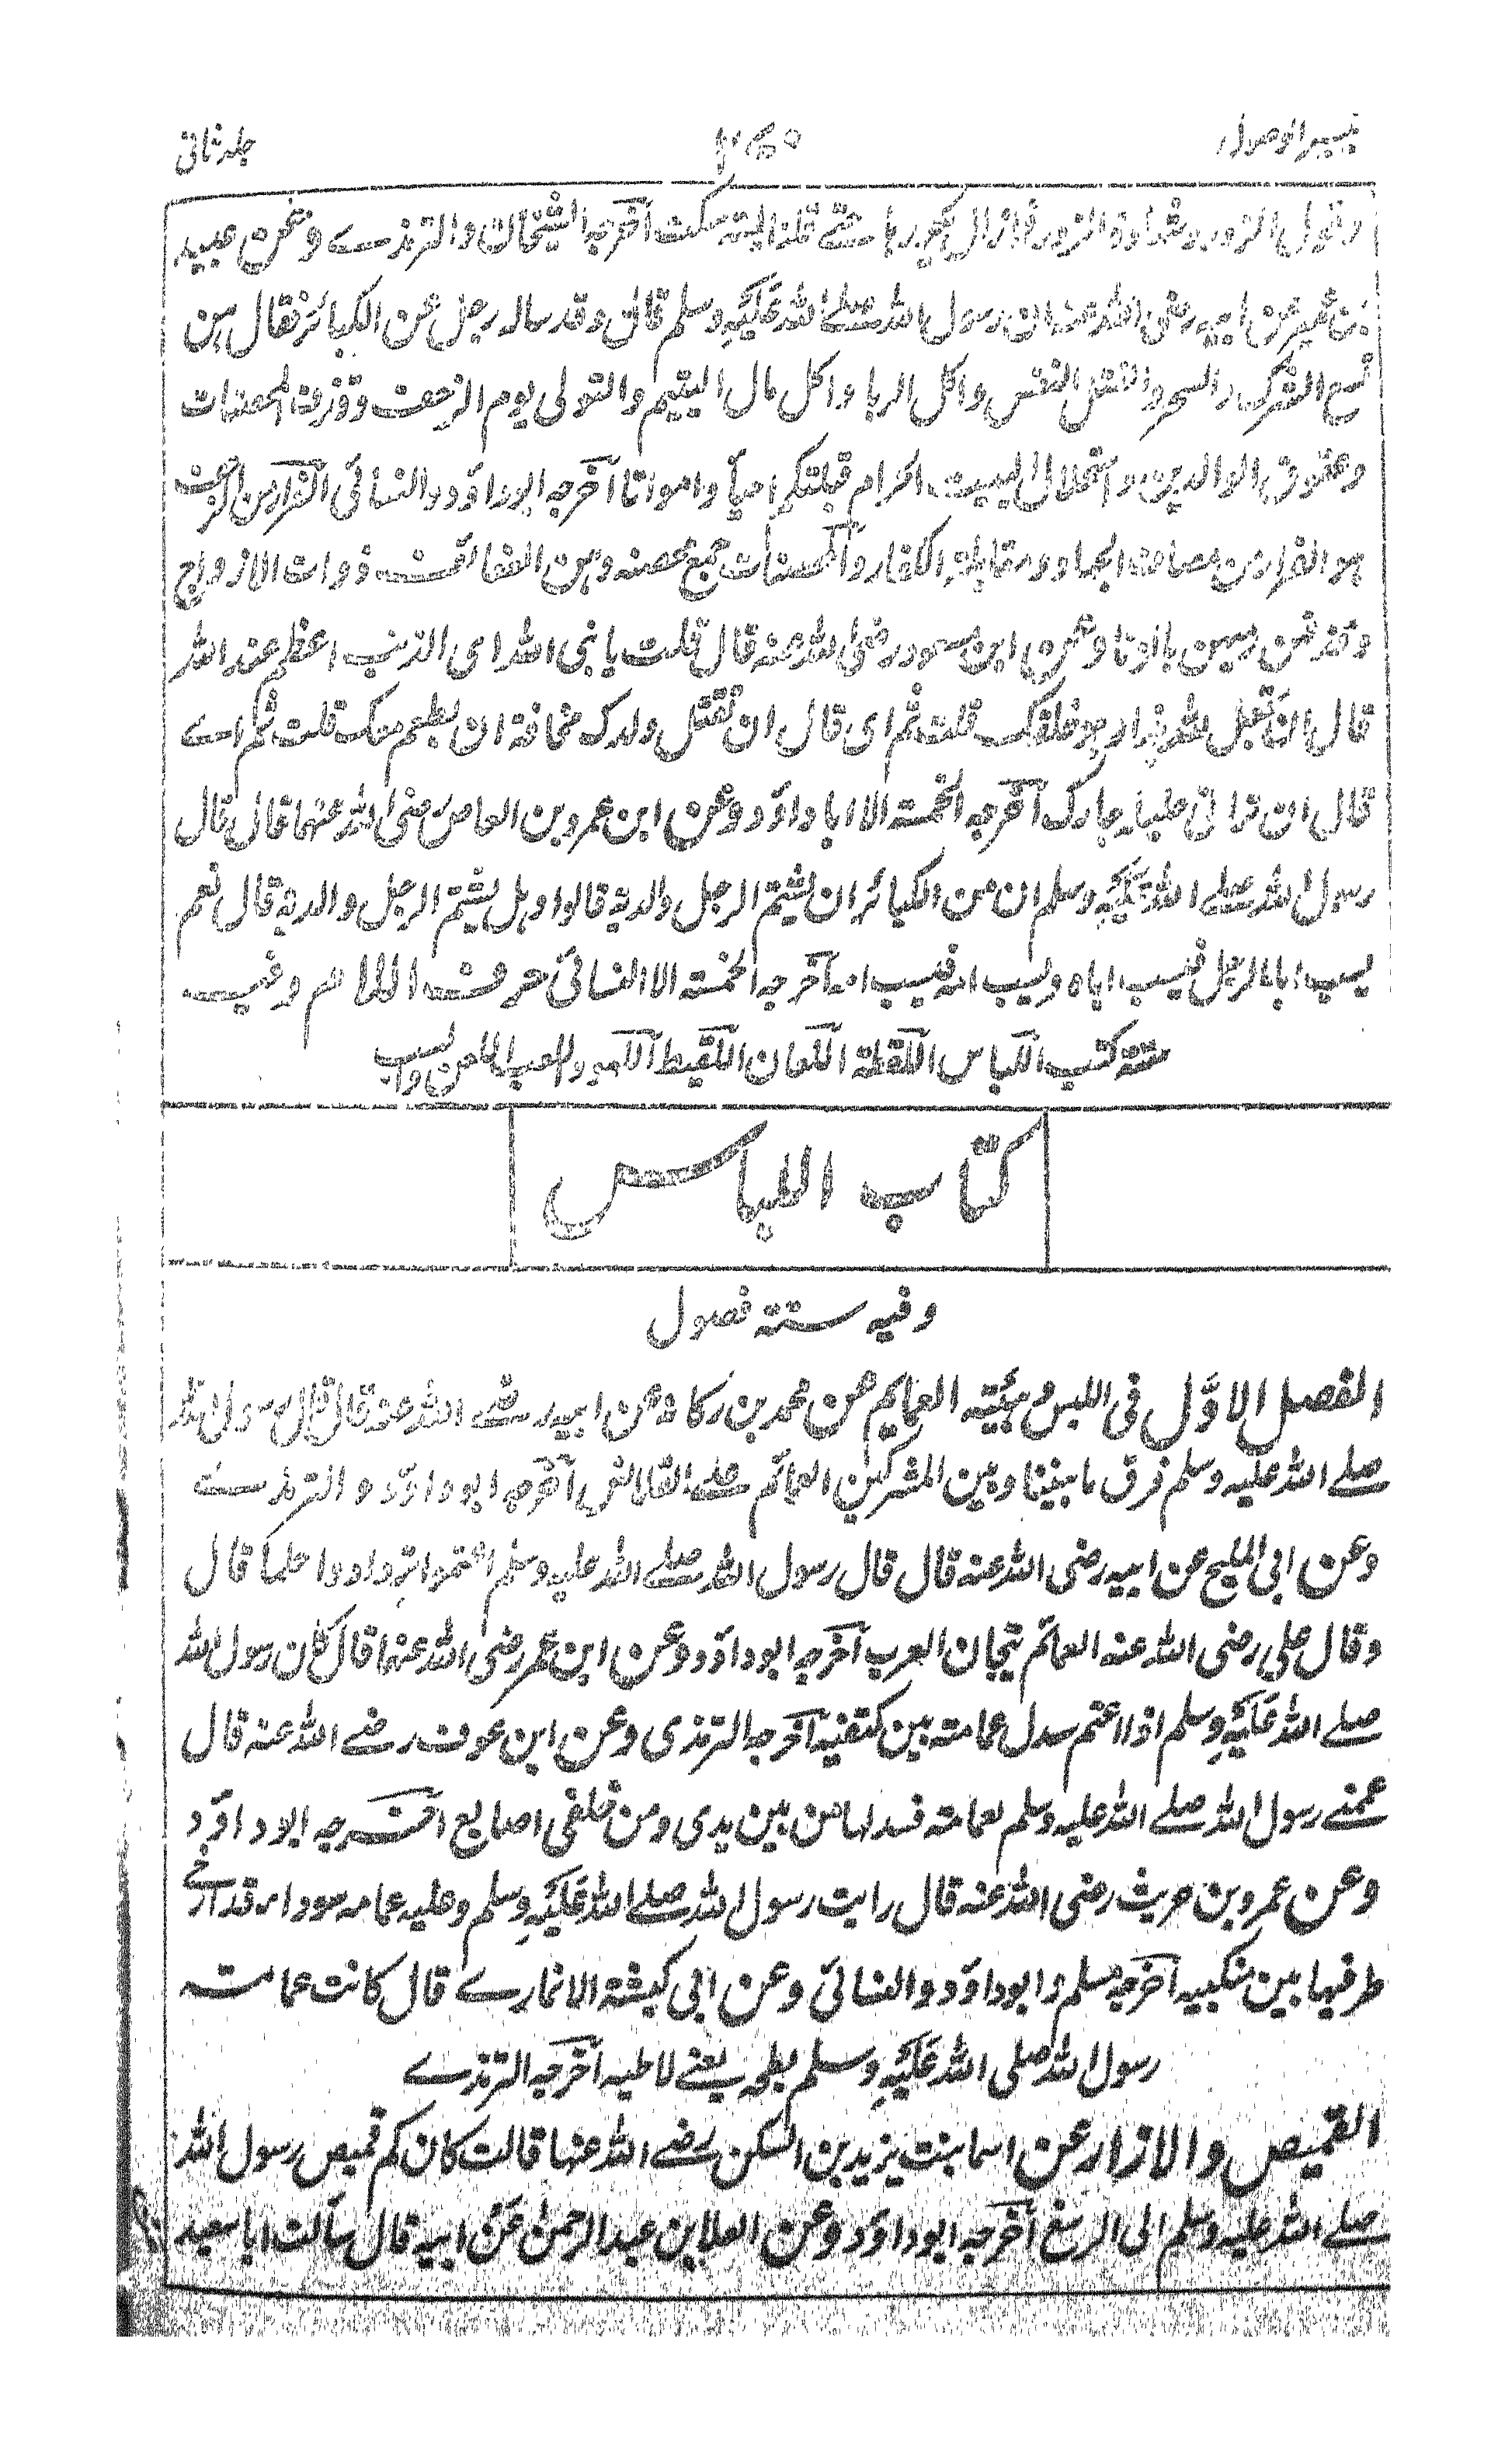 تيسير الوصول
جلد ثاني
وقول الزور وشهادة الزور فما زال يكررها حتے قلنا ليته سكت آخرجه الشيخان والترمذے وعن عبيد
بن عمير عن ابيه رضى الله عنه ان رسول الله صلے الله عَلَيْهِ وسلم قال وقد ساله رجل عن الكبائر فقال هن
تسع الشرك والسحر وقتل النفس واكل الربا واكل مال اليتيم والتولى يوم الزحف وقذف المحصنات
وعقوق الوالدين واستحلال البيت الحرام قبلتكم احيآ وامواتا آخرجه ابوداؤد والنسائى الفرار من الزحف
هو الفرار من مصاف الجهاد ومقابلة الكفار والمحصنات جمع محصنه وهن العفائف ذوات الازواج
وقذفهن رميهن بالزنا وعن ابن مسعود رضى الله عنه قال قلت يا نبى الله اى الذنب اعظم عند الله
قال ان تجعل لله ندا وهو خلقك قلت ثم اى قال ان تقتل ولدك مخافة ان يطعم معك قلت ثم اے
قال ان تزانى حليلة جارك آخرجه الخمسة الا ابا داؤد وعن ابن عمرو بن العاص رضى الله عنهما قال قال
رسول الله صلے الله عَلَيْهِ وسلم ان من الكبائر ان يشتم الرجل والديه قالوا وهل يشتم الرجل والديه قال نعم
يسب ابا الرجل فيسب اباه ويسب امه فيسب امه آخرجه الخمسته الا النسائى حرف اللام وفيه
ستة كتب اللباس اللقطة اللعان اللقيط اللهو واللعب اللعن والسب
كتاب اللباس
وفيه ستة فصول
الفصل الاوَّل فى اللبس وهيئته العمايم عن محمد بن ركانه عن ابيه رضے الله عنه قال قال رسول الله
صلے الله عليه وسلم فرق ما بيننا وبين المشركين العمائم علے القلانس آخرجه ابو داؤد والترمذے
وعن ابى المليح عن ابيه رضى الله عنه قال قال رسول الله صلے الله عليه وسلم اعتموا تزدادوا حلما قال
وقال على رضى الله عنه العمائم تيجان العرب آخرجه ابو داؤد وعن ابن عمر رضى الله عنهما قال كان رسول الله
صلے الله عَلَيْهِ وسلم اذا اعتم سدل عمامته بين كتفيه آخرجه الترمذى وعن ابن عوف رضے الله عنه قال
عممنے رسول الله صلے الله عليه وسلم بعمامة فسدلها من بين يدى ومن خلفى اصابع اخرجه ابو داؤد
وعن عمرو بن حريث رضى الله عنه قال رايت رسول الله صلے الله عَلَيْهِ وسلم وعليه عمامه سوداء قد ارخے
طرفيها بين منكبيه آخرجه مسلم وابوداؤد والنسائى وعن ابى كبشة الانمارے قال كانت عمامته
رسول الله صلى الله عَلَيْهِ وسلم بطحه يعنے لاطيه آخرجه الترمذے
القميص والازار عن اسما بنت يزيد بن السكن رضے الله عنها قالت كان كم قميص رسول الله
صلے الله عليه وسلم الى الرسغ آخرجه ابوداؤد وعن العلا بن عبد الرحمن عَن ابيه قال سآلت ابا سعيد